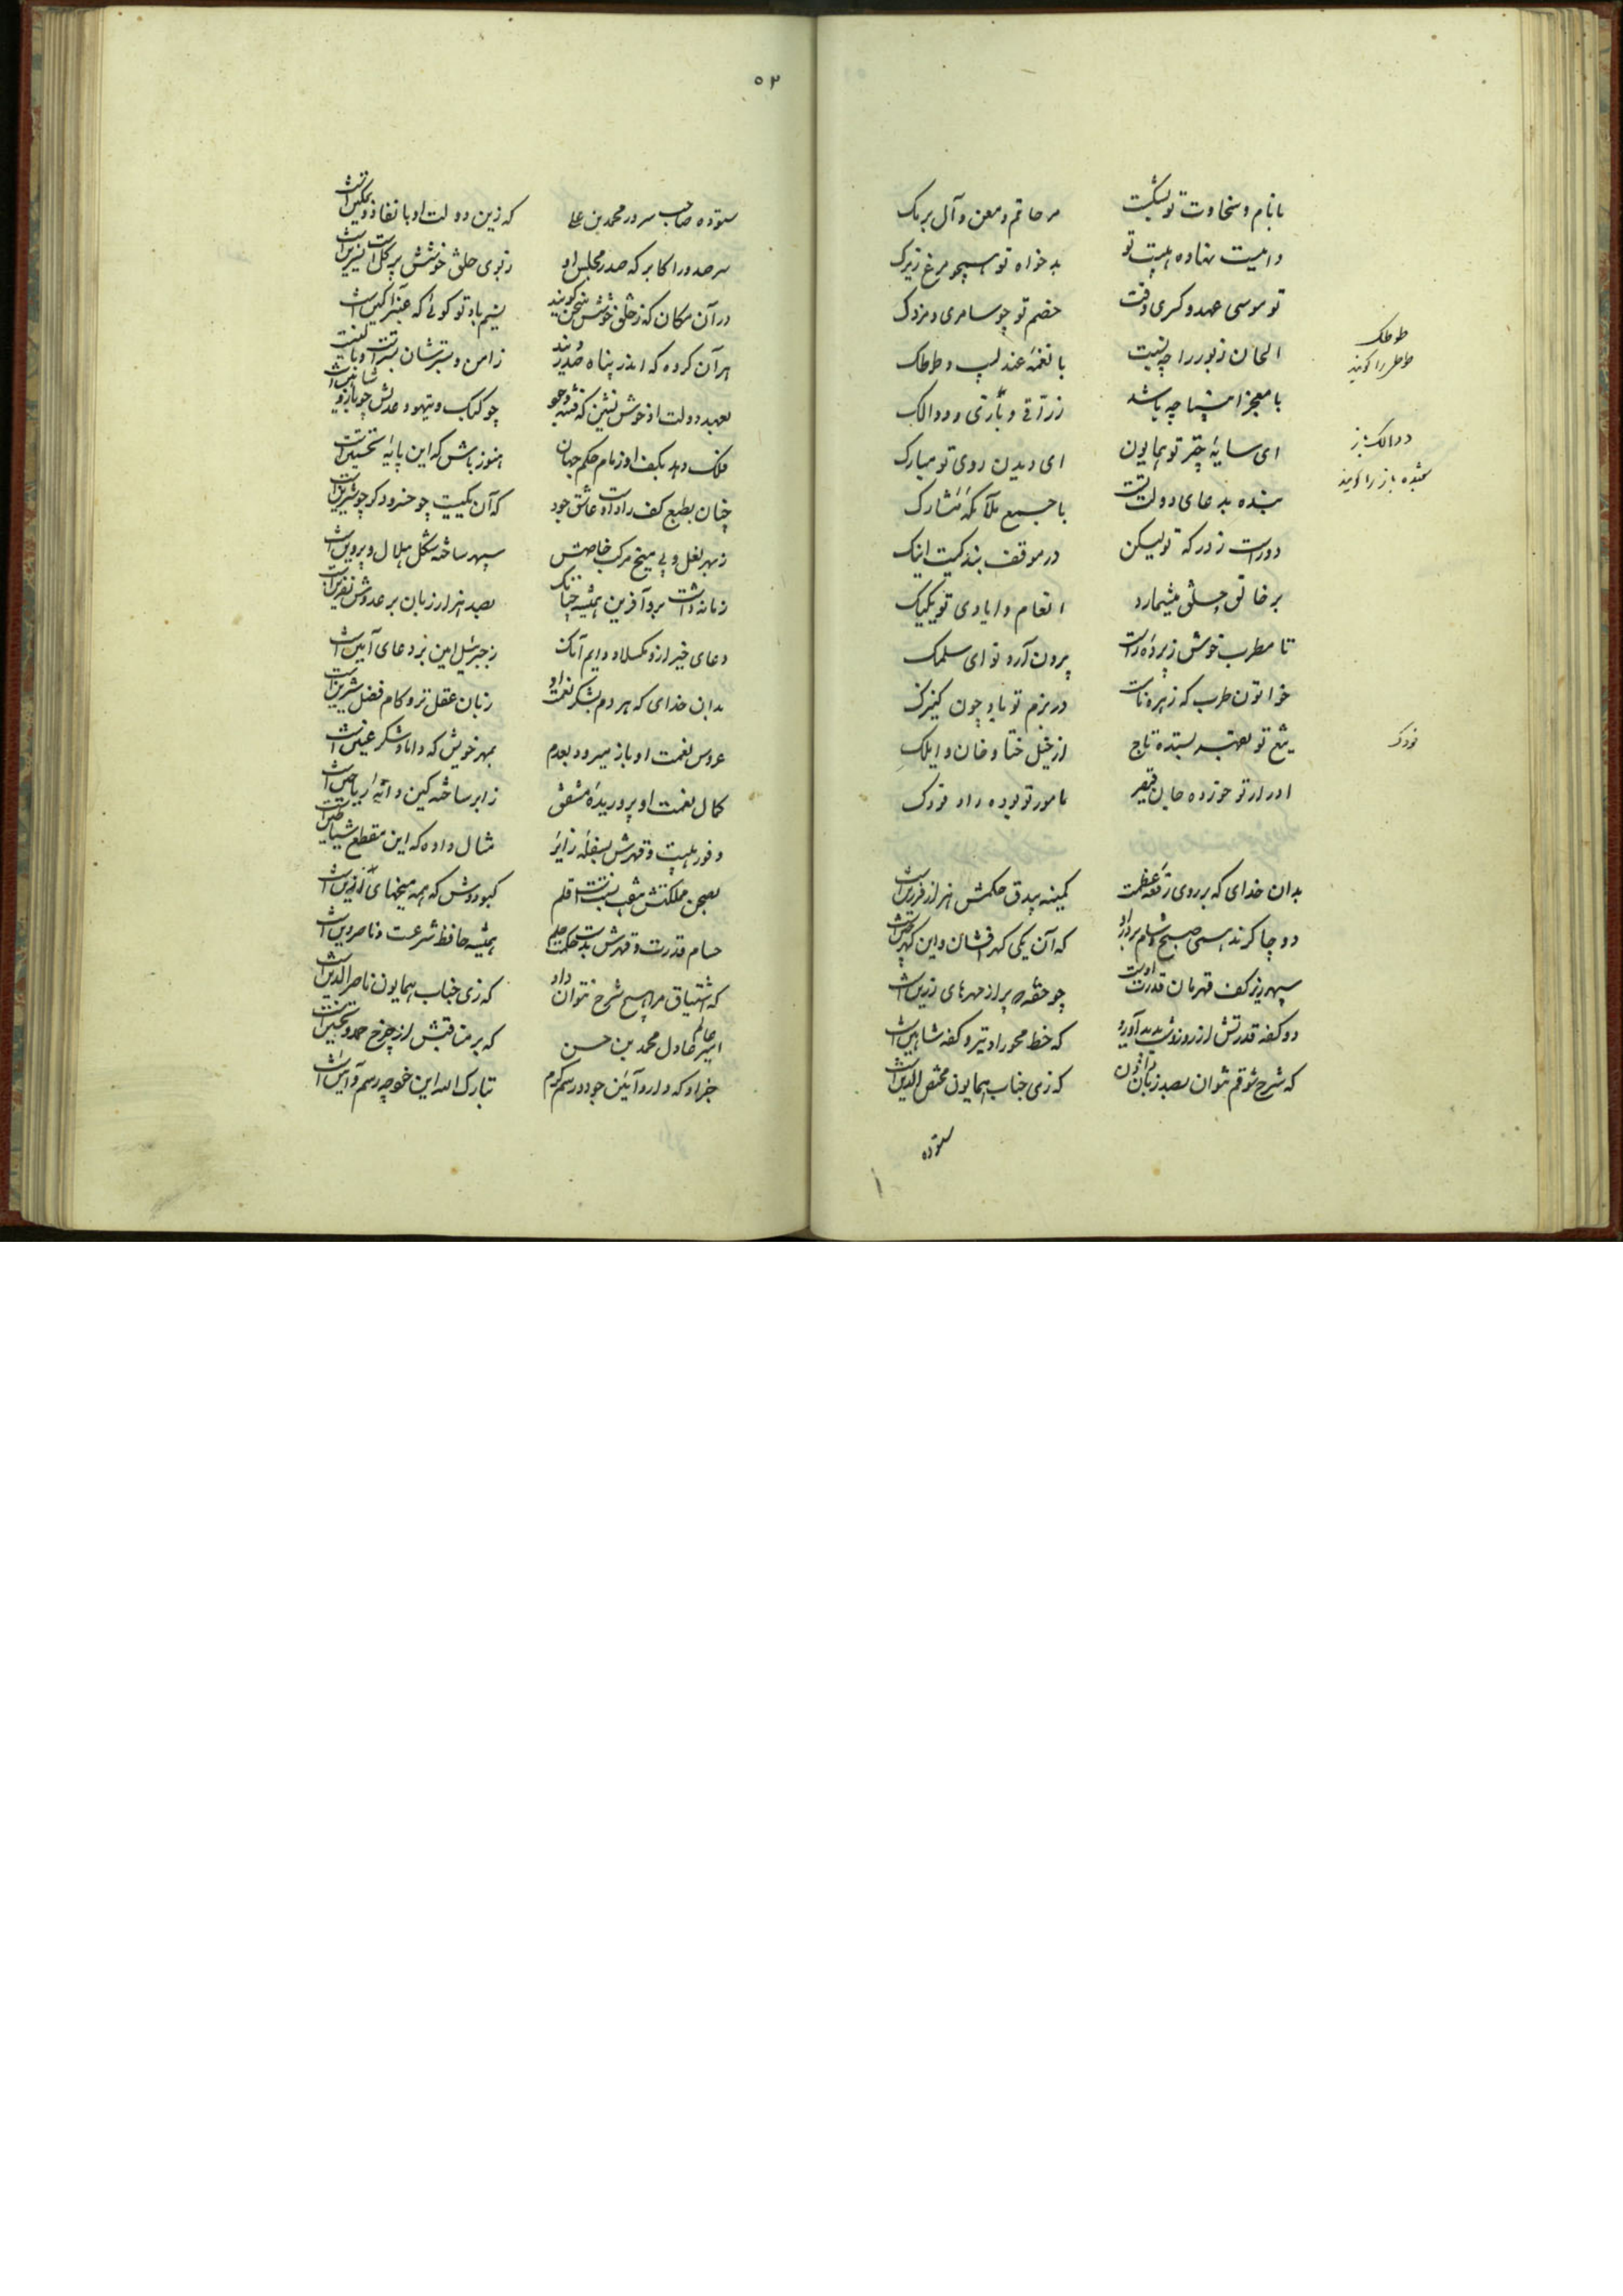 با نام و سخاوت تو بشکست
مر حاتم و معن و آل برمک
دامیست نهاده هیبت تو
بدخواه تو همچو مرغ زیرک
تو موسی عهد و کسری وقت
خصم تو چو سامری و مزدک
الحان زبور را چه نسبت
با نغمهٔ عندلیب و طوطک
با معجز انبیا چه باشد
زراقی و بازی دوالک
ای سایهٔ چتر تو همایون
ای دیدن روی تو مبارک
بنده بدعای دولتت
با جمیع ملائکه مشارک
دورست ز درگه تو لیکن
در موقف بندگیت اینک
بر خالق خلق میشمارد
انعام و ایادی تو یکیک
تا مطرب خوش ز پرده راست
بیرون آرد نوای سلمک
خواتون طرب که زهره نامست
در بزم تو باد چون کنیزک
تیغ تو بعهد بستده تاج
از خیل ختا و خان و ایلک
ادرار تو خورده جان قیصر
مامور تو بوده راد فورک
طوطک
طوطی را گویند
دوالک باز
شعبده باز را گویند
فورک
بدان خدای که بر روی رقعهٔ عظمت
کمینه بیدق حکمش هزار فرزین است
دو چاکرند همی صبح و شام بر در او
که آن یکی گهرافشان و این گهرچین است
سپهر زیر کف قهرمان قدرت اوست
چو حقه پر از مهرهای زرین است
دو کفه قدرتش از روز و شب پدید آورد
که خط محور او تیر و کفه شاهین است
که شرح شوقم نتوان بصد زبان دادن
که زی جناب همایون مخلص الدین است
ستوده
۵۲
ستوده صاحب سرور محمد بن علی
که زین دولت او با نفاذ و تمکین است
سر صدور اکابر که صدر مجلس او
ز بوی خلق خوشش پر گل است و نسرین است
در آن مکان که ز خلق خوشش سخن گویند
نسیم باد تو گوئی که عنبرآگین است
هر آن گروه که اندر پناه صدرند
ز امن بسترشان
بعهد دولت او خوش نشین که فتنه و جور
چو کبک و تیهو و عدلش چو باز و شاهین است
فلک دهد بکف او زمام حکم جهان
هنوز باش که این پایهٔ نخستین است
چنان بطبع کف راد اوست عاشق جود
که آن یکیست چو خسرو دگر چو شیرین است
ز بهر نعل و پی میخ مرکب خاصش
سپهر ساخته شکل هلال و پروین است
زمانه داشت برو آفرین همیشه چنانک
بصد هزار زبان بر عدوش نفرین است
دعای خیر ازو مگسلاد دایم آنک
ز جبرئیل امین بر دعای آمین است
بدان خدای که هر دم بشکر نعمت او
زبان عقل تر و کام فضل شیرین است
عروس نعمت او باز میرود بعدم
بمهر خویش که داماد شکر عنین است
کمال نعمت او پروریدهٔ مشفق
ز ابر ساخته کین دایهٔ ریاحین است
وفور هیبت و قهرش بشعله زایر
مثال داده که این مقطع شیاطین است
بصحن مملکتش
کبودوش که همه میخهای
حسام قدرت و قهرش بدست حکمت و حلم
همیشه حافظ شرعت و ناصر دین است
که اشتیاق مرا هیچ شرح نتوان داد
که زی جناب همایون ناصرالدین است
امیر عالم عادل محمد بن حسن
که بر مناقبش از چرخ حمد و تحسین است
جز او که دارد آئین جود و رسم کرم
تبارک الله این خود چه رسم و آئین است